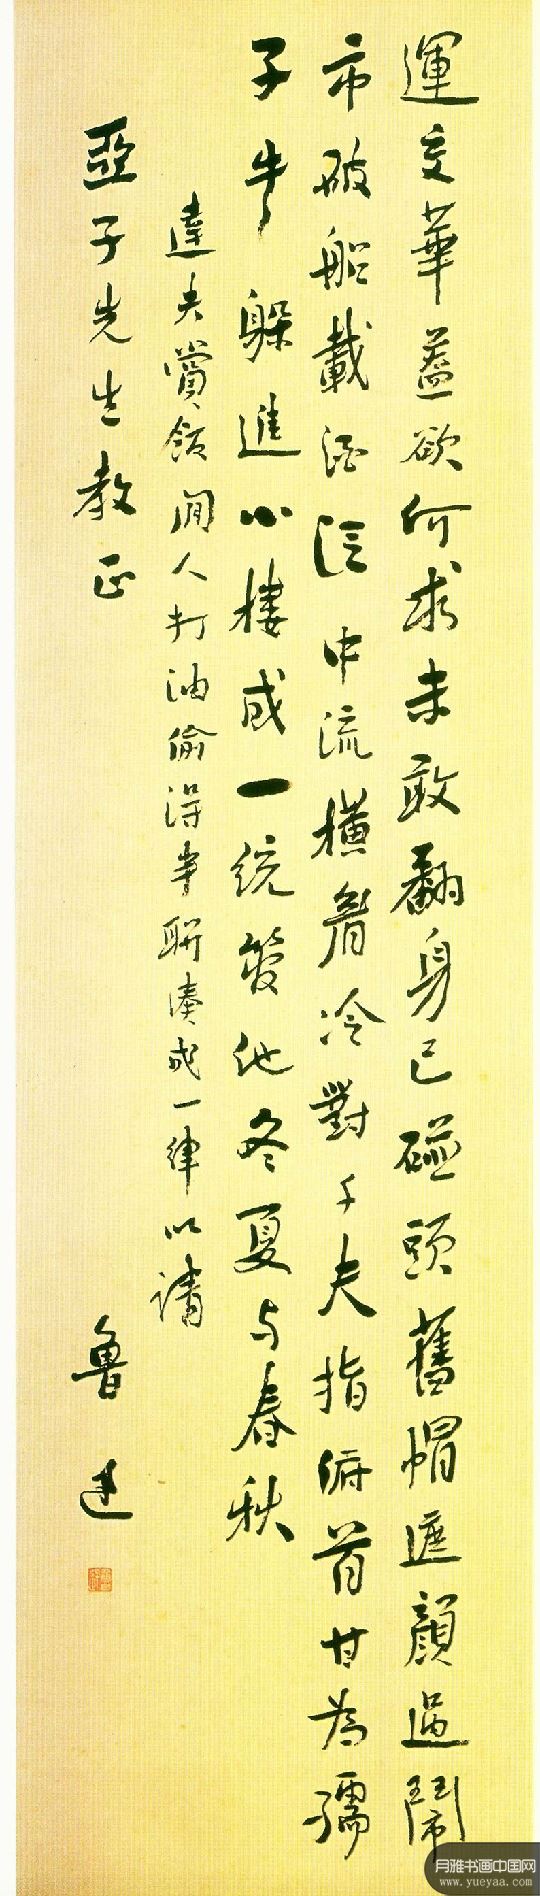 運交華蓋欲何求未敢翻身已碰頭舊帽遮顏過鬧
市破船載酒泛中流橫眉冷對千夫指俯首甘為孺
子牛躲進小樓成一統管他冬夏与春秋
達夫賞飯閒人打油偷得半聯湊成一律以請
亞子先生教正
魯迅
月雅书画中国网
www.yueyaa.com